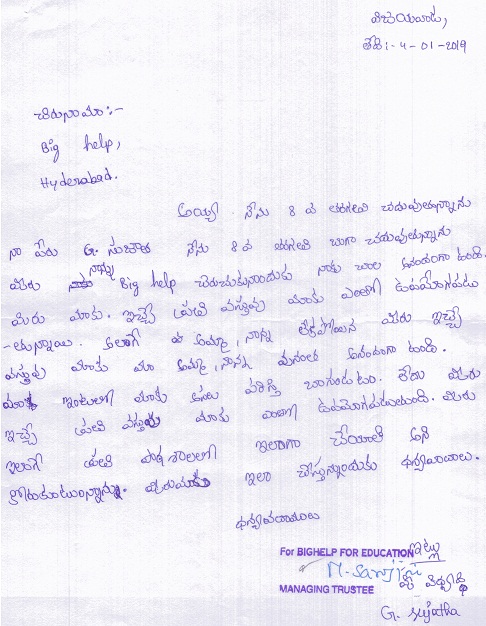 విజయవాడ,
తేది :- 4 - 01 - 2019
చిరునామా :-
Big help,
Hyderabad.
అయ్యా నేను 8 వ తరగతి చదువుతున్నాను
నా పేరు G. సుజాత నేను 8 వ తరగతి బాగా చదువుతున్నాను
మీరు నాన్ను Big help చేరుచుకునందుకు నాకు చాల ఆనందంగా ఉంది.
మీరు మాకు. ఇచ్చే ప్రతి వస్తువు మాకు ఎంతో ఉపయోగపడు
- తున్నాయి. అలాగే మా అమ్మా, నాన్న లేకపోయిన మీరు ఇచ్చే
వస్తువు మాకు మా అమ్మా, నాన్న ఆనందంగా ఉంది.
ఇంటులో మాకు పరిస్తి బాగుడుటం. లేదు మీరు
ఇచ్చే ప్రతి వస్తువు మాకు ఎంతో ఉపయోగపడుతుంది. మీరు
ఇలాగే ప్రతి పాఠశాలలో ఇలాగా చేయాలి అని
కోరుకుటున్నాను. ఇలా చేస్తున్నందుకు ధన్యవాదాలు.
ధన్యవాదాలు
For BIGHELP FOR EDUCATION ఇట్లు
MANAGING TRUSTEE
G. sujatha